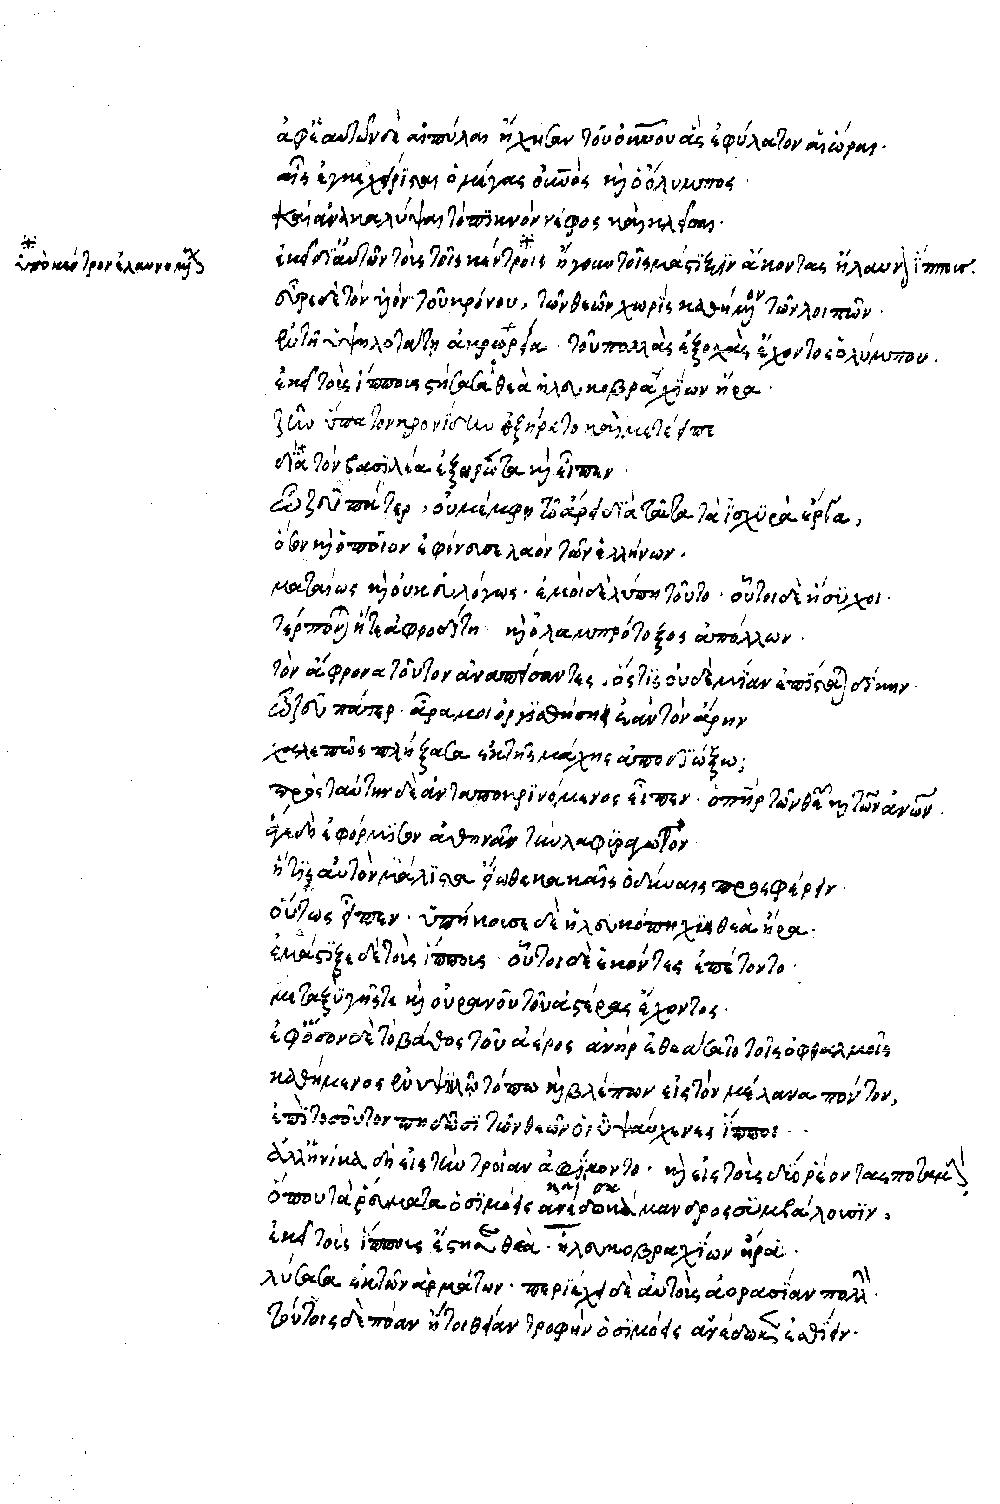 ἀφ' ἑαυτῶν δὲ αἱ πύλαι ἤχησαν τοῦ οὐνου ἃς ἐφύλατον αἱ ὧραι·
αἷς ἐγκεχείρισται ὁ μέγας οὐνὸς καὶ ὁ ὄλυμπος·
καὶ ἀνακαλύψαι τὸ πυκνὸν νέφος καὶ κλεῖσαι·
ὑπὸ κέντρον ἐλαυνομένους
ἐκεῖ δι' αὐτῶν τοὺς τοῖς κέντροις ἤγουν τοῖς μάστιξιν ἄκοντας ἤλαυνον ἵππους.
εὗρε δὲ τὸν υἱὸν τοῦ κρόνου, τῶν θεῶν χωρὶς καθήμενον τῶν λοιπῶν·
ἐν τῇ ὑψηλοτάτῃ ἀκρωρεία· τοῦ πολλὰς ἐξοχὰς ἔχοντος ὀλύμπου.
ἐκεῖ τοὺς ἵππους στήσασα θεὰ ἡ λευκοβραχίων ἥρα·
ζῆν ὕπατον κρονίδην ἐξήρετο καὶ μετέειπε
δία τὸν βασιλέα ἐξερωτα καὶ εἶπεν·
ὦ ζεῦ πάτερ, οὐ μέμφη τῶ ἄρει διὰ ταῦτα τὰ ἰσχυρὰ ἔργα,
ὅσον καὶ ὁποῖον ἐφόνευσε λαὸν τῶν ἑλλήνων.
ματαίως καὶ οὐκ εὐλόγως· ἐμοὶ δὲ λύπη τοῦτο· οὗτοι δὲ ἥσυχοι·
τέρπονται ἥ τε ἀφροδίτη καὶ ὁ λαμπρότοξος ἀπόλλων·
τὸν ἄφρονα τοῦτον ἀναπείσαντες, ὅστις οὐδεμίαν ἐπίσταται δίκην·
ὦ ζεῦ πάτερ· ἆρα μοι ὀργισθήσῃ ἐὰν τὸν ἄρην
χαλεπῶς πλήξασα ἐκ τῆς μάχης ἀποδιώξω;
πρὸς ταύτην δὲ ἀνταποκρινόμενος εἶπεν· ὁ πὴρ τῶν θεῶν καὶ τῶν ἀνων·
ἄγε δὴ ἐφόρμησον ἀθηνᾶν τὴν λαφυραγωγὸν
ἥτις αὐτὸν μάλιστα εἴωθε κακαῖς ὀδύναις προσφέρειν·
οὕτως εἶπεν· ὑπήκουσε δὲ ἡ λευκόπηχις θεὰ ἥρα·
ἐμάστιξε δὲ τοὺς ἵππους· οὗτοι δὲ ἑκόντες ἐπέτοντο·
μεταξὺ γῆς τε καὶ οὐρανοῦ τοῦ ἀστέρας ἔχοντος·
ἐφ' ὅσον δὲ τὸ βάθος τοῦ ἀέρος ἀνὴρ ἐθεάσατο τοῖς ὀφθαλμοῖς
καθήμενος ἐν ὑψηλῶ τόπω καὶ βλέπων εἰς τὸν μέλανα πόντον,
ἐπὶ τοσοῦτον πηδῶσι τῶν θεῶν οἱ ὑψαύχενες ἵπποι·
ἀλλ' ἡνίκα δὴ εἰς τὴν τροίαν ἀφίκοντο· καὶ εἰς τοὺς δύο ῥέοντας ποταμοὺς,
ὅπου τὰ ῥεύματα ὁ σιμόεις καὶ σκάμανδρος συμβάλουσιν,
ἐκεῖ τοὺς ἵππους ἔστησε θεὰ· ἡ λευκοβραχίων ἥρα·
λύσασα ἐκ τῶν ἁρμάτων· περιέχει δὲ αὐτοὺς ἀορασίαν πολλὴν·
τούτοις δὲ πόαν ἤτοι θείαν τροφὴν ὁ σιμόεις ἀνέδωκε ἐσθίειν·